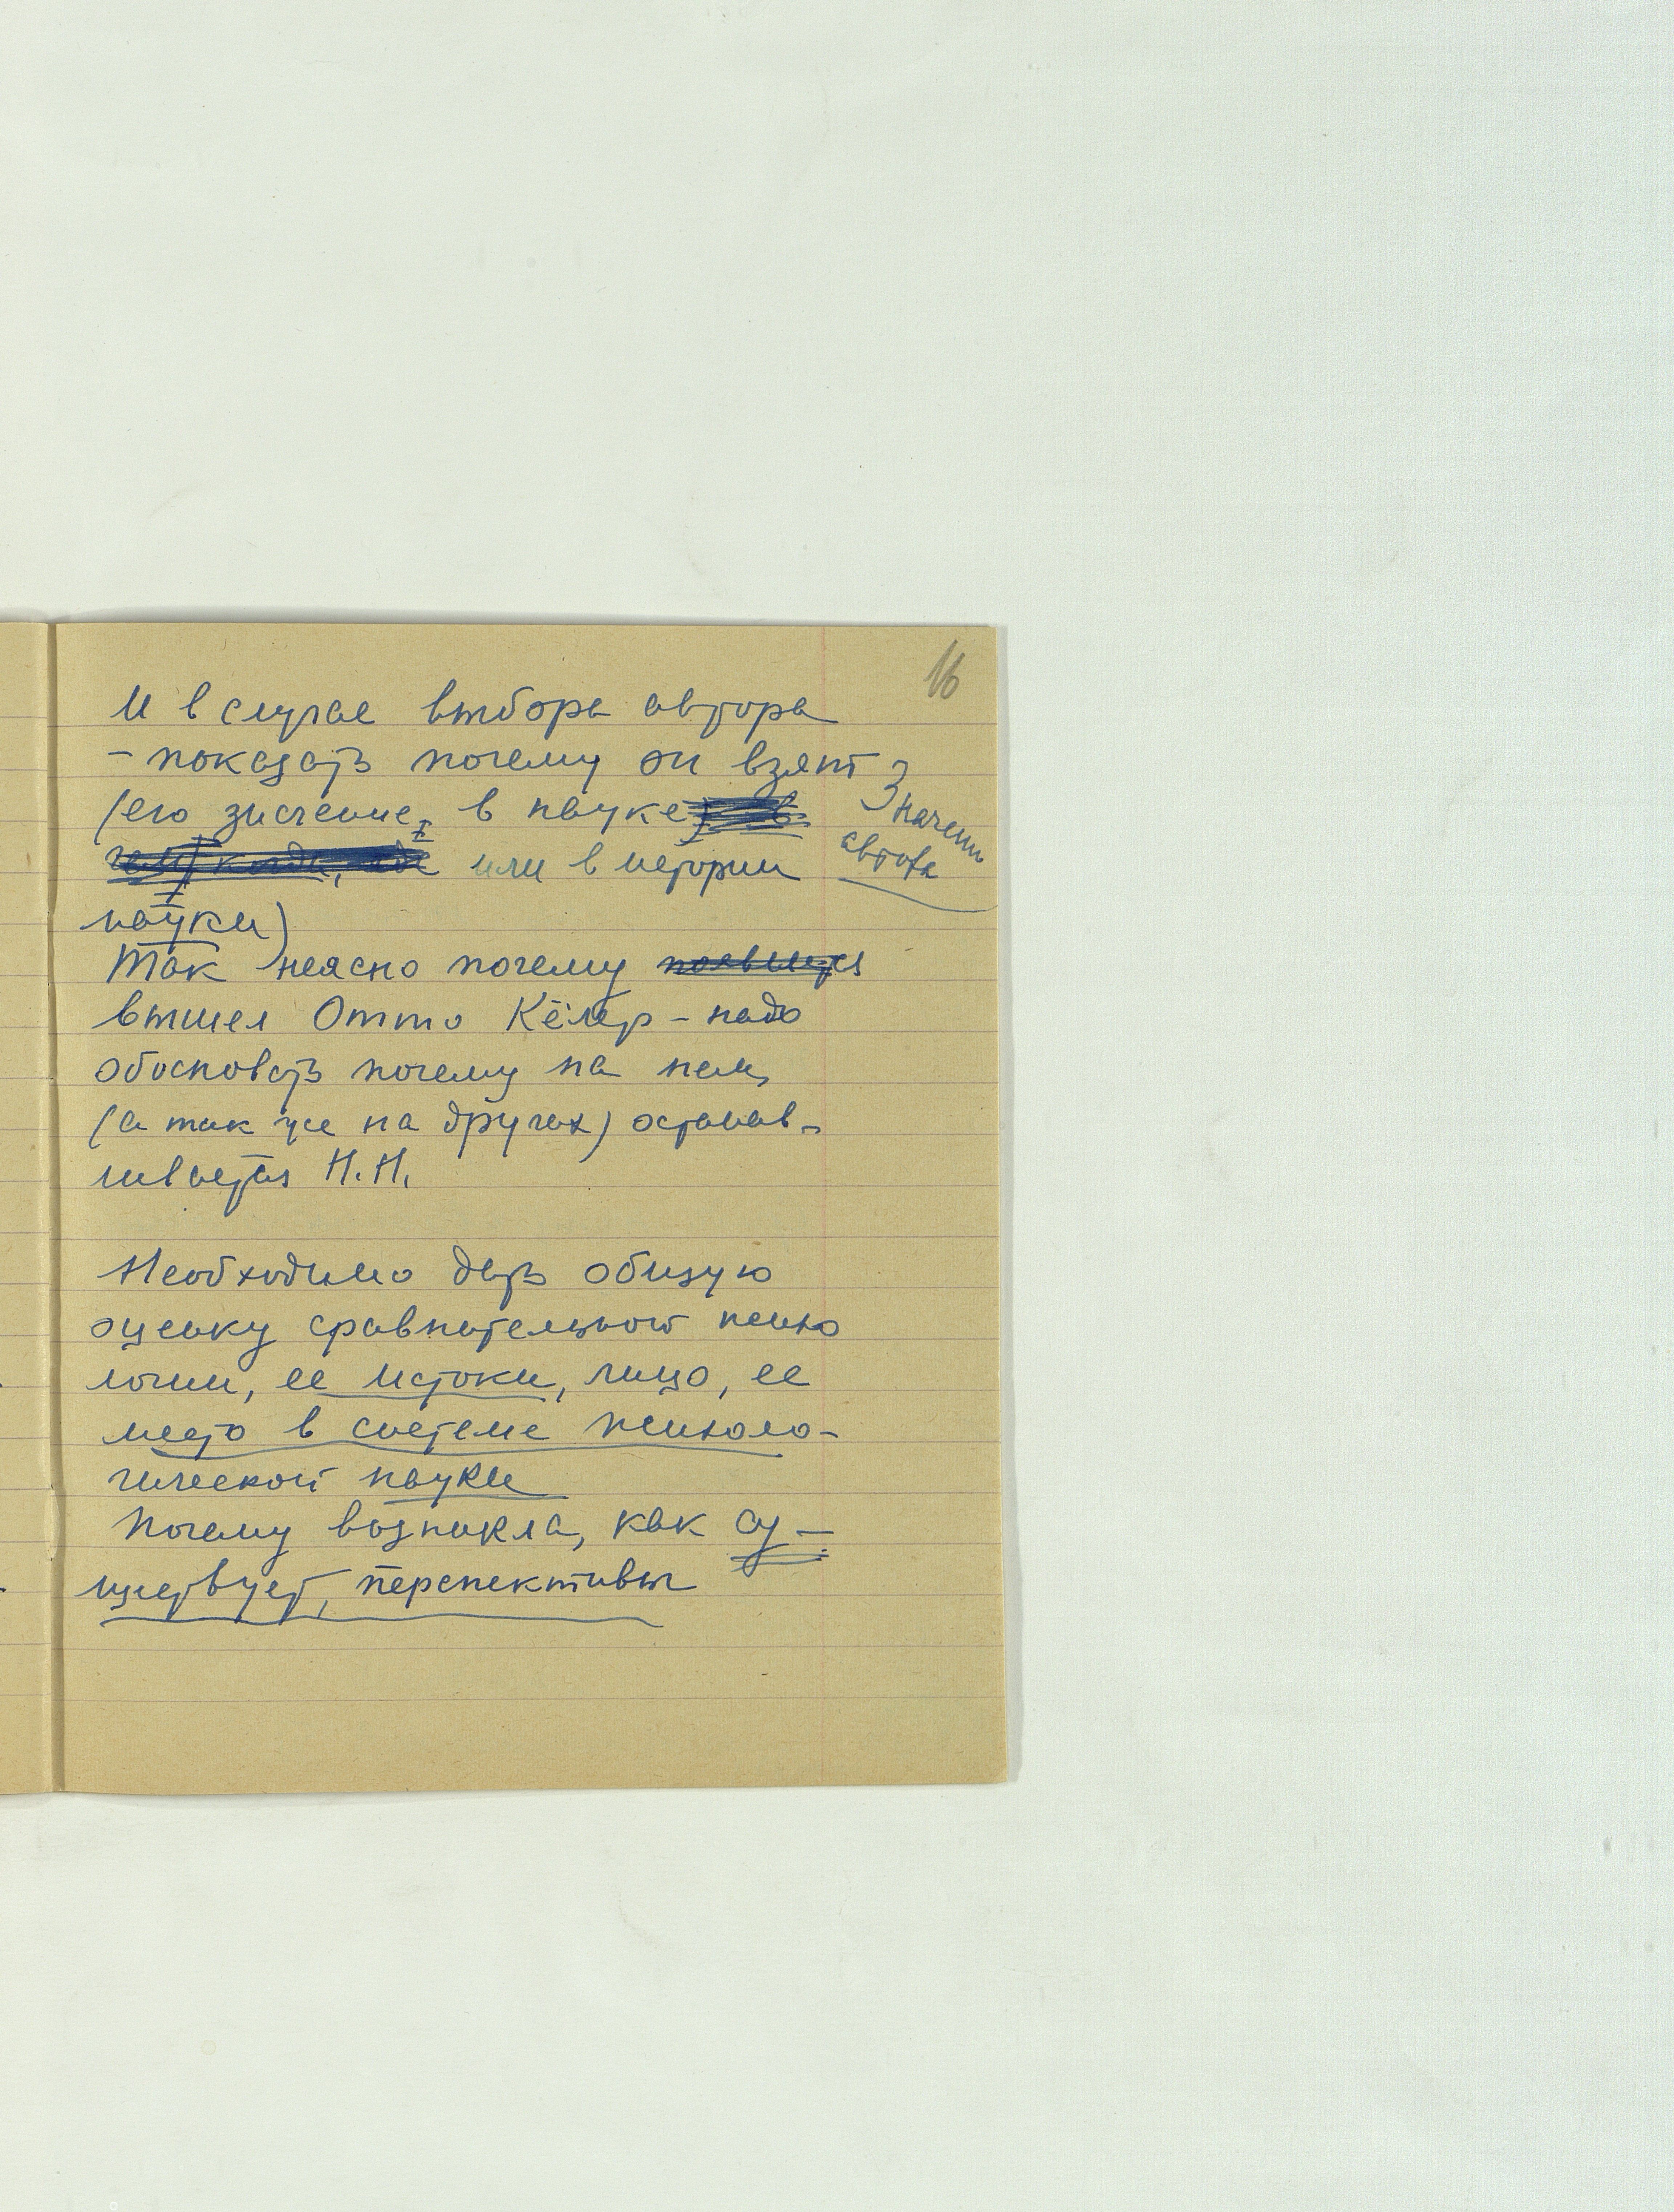 16
И в случае выбора автора
- показать почему он взят
(его значение в науке
или в истории
науки)
Значение
автора
Так неясно почему появился
вышел Отто Кёлер - надо
обосновать почему на нем
(а так же на других) останав-
ливается Н.Н.
Необходимо дать общую
оценку сравнительной психо
логии, ее истоки, лицо, ее
место в системе психоло-
гической науки
Почему возникла, как су-
ществует, перспективы